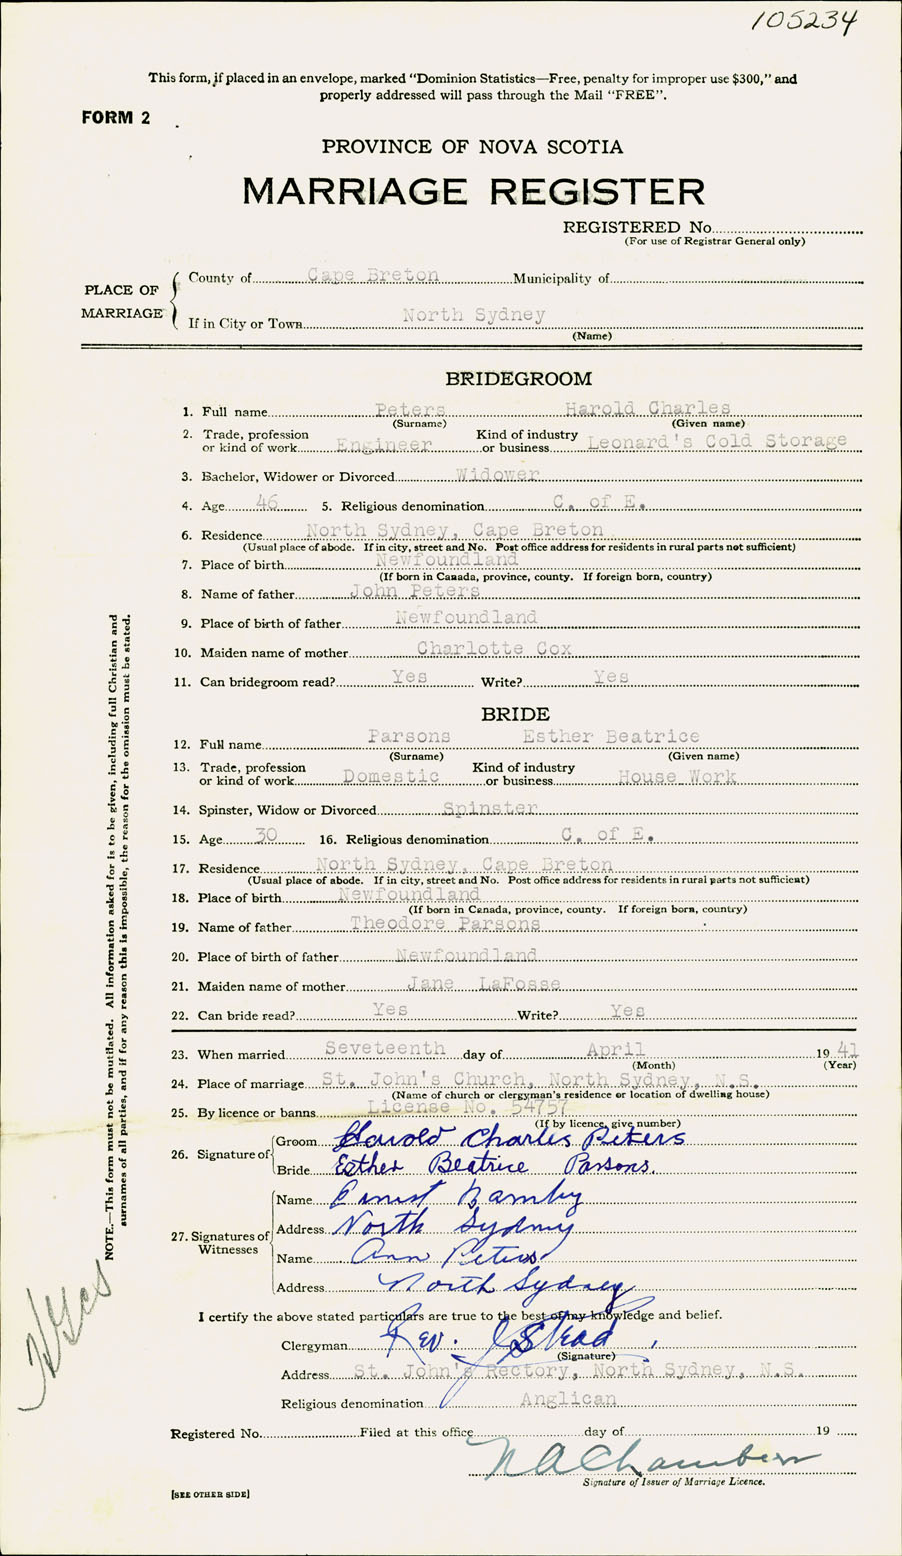 105234
This form, if placed in an envelope, marked "Dominion Statistics—Free, penalty for improper use $300," and
properly addressed will pass through the Mail "FREE".
FORM 2
PROVINCE OF NOVA SCOTIA
MARRIAGE REGISTER
REGISTERED No.
(For use of Registrar General only)
PLACE OF MARRIAGE
County of Cape Breton Municipality of
If in City or Town North Sydney
(Name)
BRIDEGROOM
1. Full name Peters Harold Charles
(Surname) (Given name)
2. Trade, profession or kind of work Engineer Kind of industry or business Leonard's Cold Storage
3. Bachelor, Widower or Divorced Widower
4. Age 46 5. Religious denomination C. of E.
6. Residence North Sydney, Cape Breton
(Usual place of abode. If in city, street and No. Post office address for residents in rural parts not sufficient)
7. Place of birth Newfoundland
(If born in Canada, province, county. If foreign born, country)
8. Name of father John Peters
9. Place of birth of father Newfoundland
10. Maiden name of mother Charlotte Cox
11. Can bridegroom read? Yes Write? Yes
BRIDE
12. Full name Parsons Esther Beatrice
(Surname) (Given name)
13. Trade, profession or kind of work Domestic Kind of industry or business House Work
14. Spinster, Widow or Divorced Spinster
15. Age 30 16. Religious denomination C. of E.
17. Residence North Sydney, Cape Breton
(Usual place of abode. If in city, street and No. Post office address for residents in rural parts not sufficient)
18. Place of birth Newfoundland
(If born in Canada, province, county. If foreign born, country)
19. Name of father Theodore Parsons
20. Place of birth of father Newfoundland
21. Maiden name of mother Jane LaFosse
22. Can bride read? Yes Write? Yes
23. When married Seveteenth day of April 1941
(Month) (Year)
24. Place of marriage St. John's Church, North Sydney, N.S.
(Name of church or clergyman's residence or location of dwelling house)
25. By licence or banns License No. 54757
(If by licence, give number)
26. Signature of Groom Harold Charles Peters
Bride Esther Beatrice Parsons.
27. Signatures of Witnesses
Name Ernest
Address North Sydney
Name Ann Peters
Address North Sydney
I certify the above stated particulars are true to the best of my knowledge and belief.
Clergyman Rev.
(Signature)
Address St. John's Rectory, North Sydney, N.S.
Religious denomination Anglican
Registered No. Filed at this office day of 19
N A Chambers
Signature of Issuer of Marriage Licence.
[SEE OTHER SIDE]
NOTE.—This form must not be mutilated. All information asked for is to be given, including full Christian and
surnames of all parties, and if for any reason this is impossible, the reason for the omission must be stated.